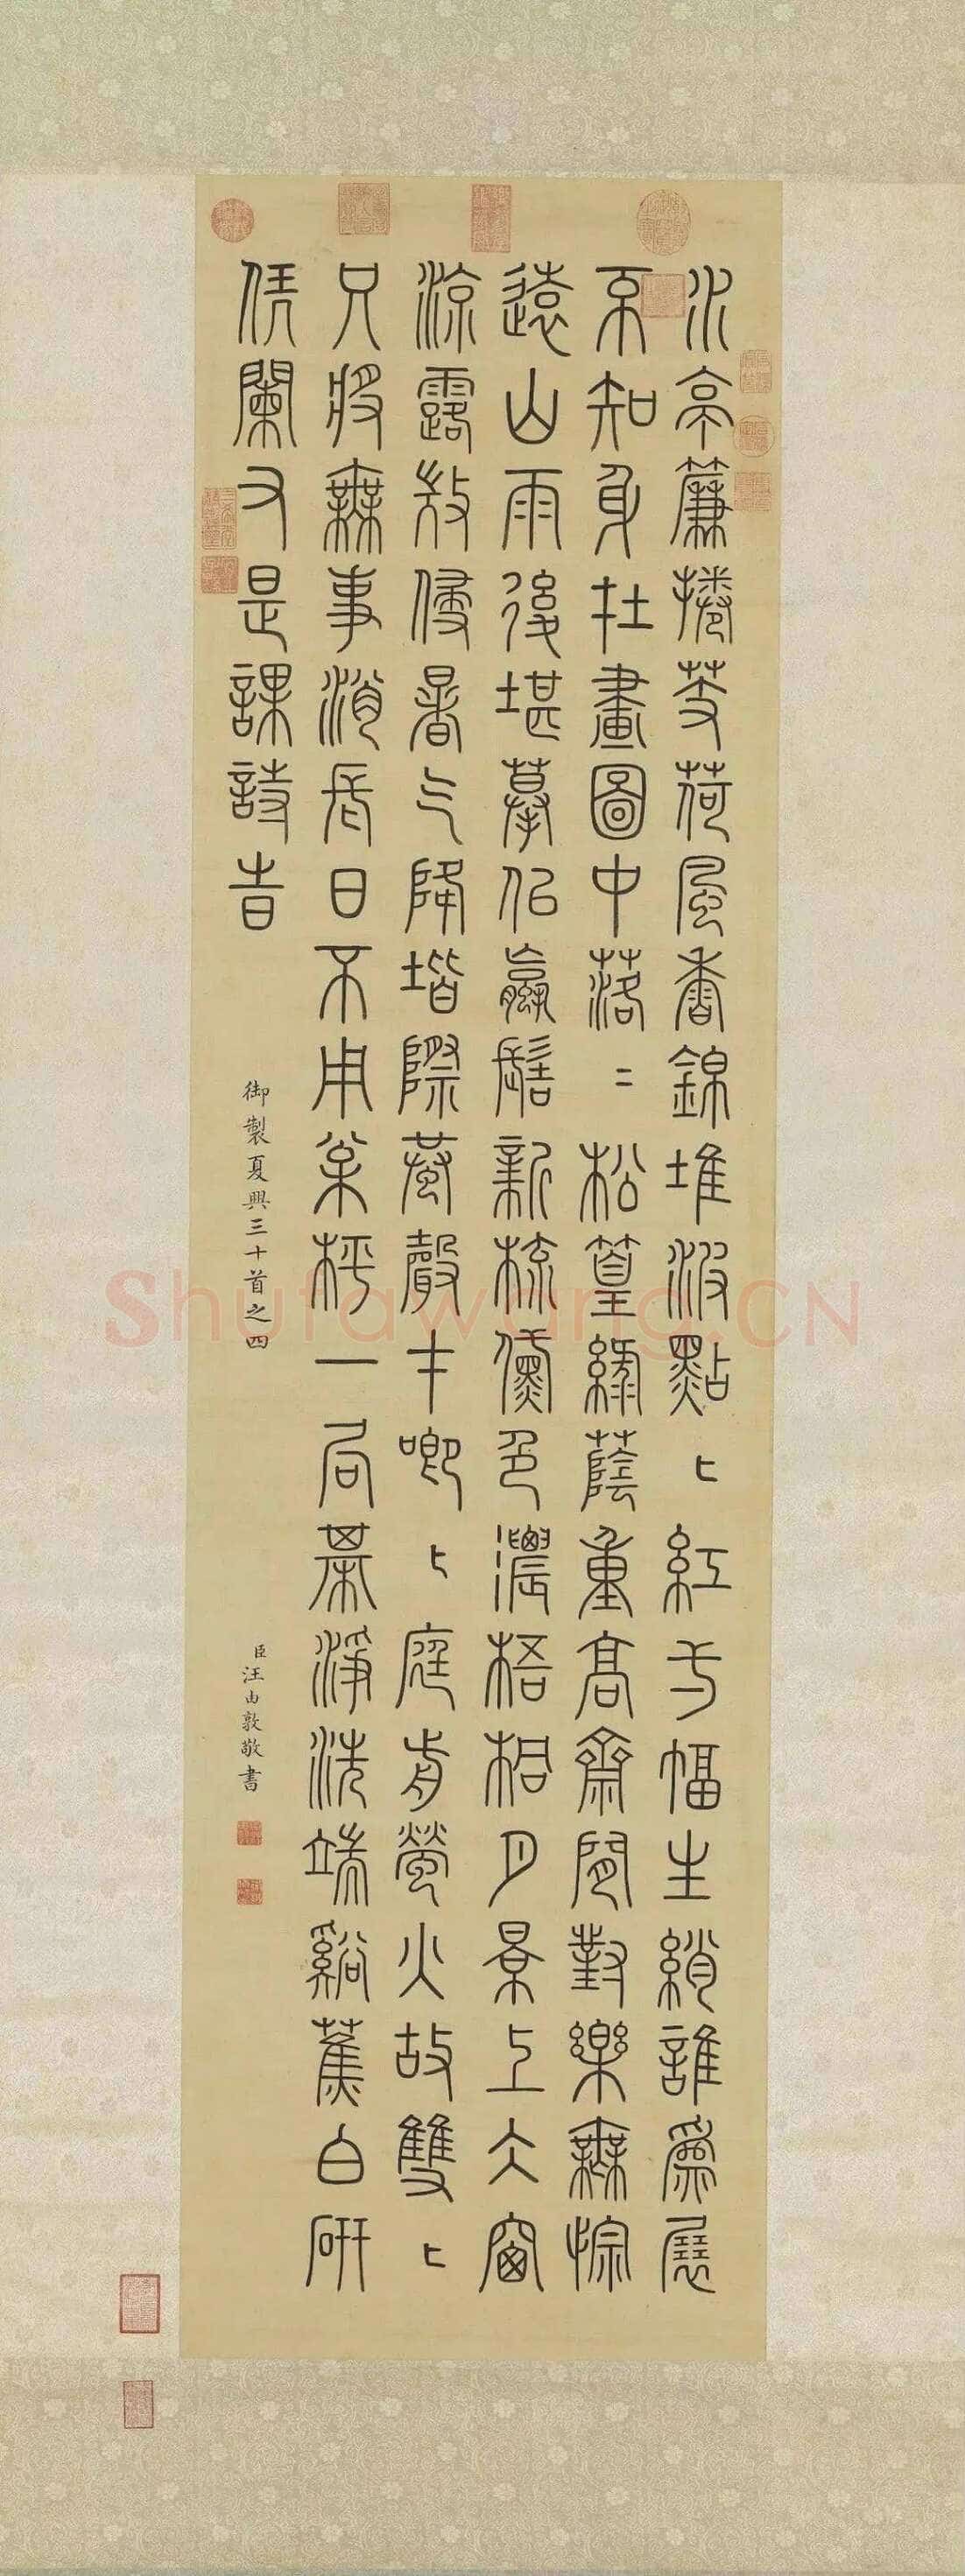 水亭簾捲芰荷風香錦堆波點〻紅方幅生綃誰為展
不知身在畫圖中落〻松篁綠蔭重高齋閒對樂無悰
遠山雨後堪摹似蠃髻新梳黛色濃梧桐月景上六窗
涼露侵暑气降堦際蛩聲才唧〻庭前螢火故雙〻
只將無事消長日不用楸枰一局棊淨洗端谿蕉白研
凭闌又是課詩旹
御製夏興三十首之四
臣汪由敦敬書
Shufawang.CN